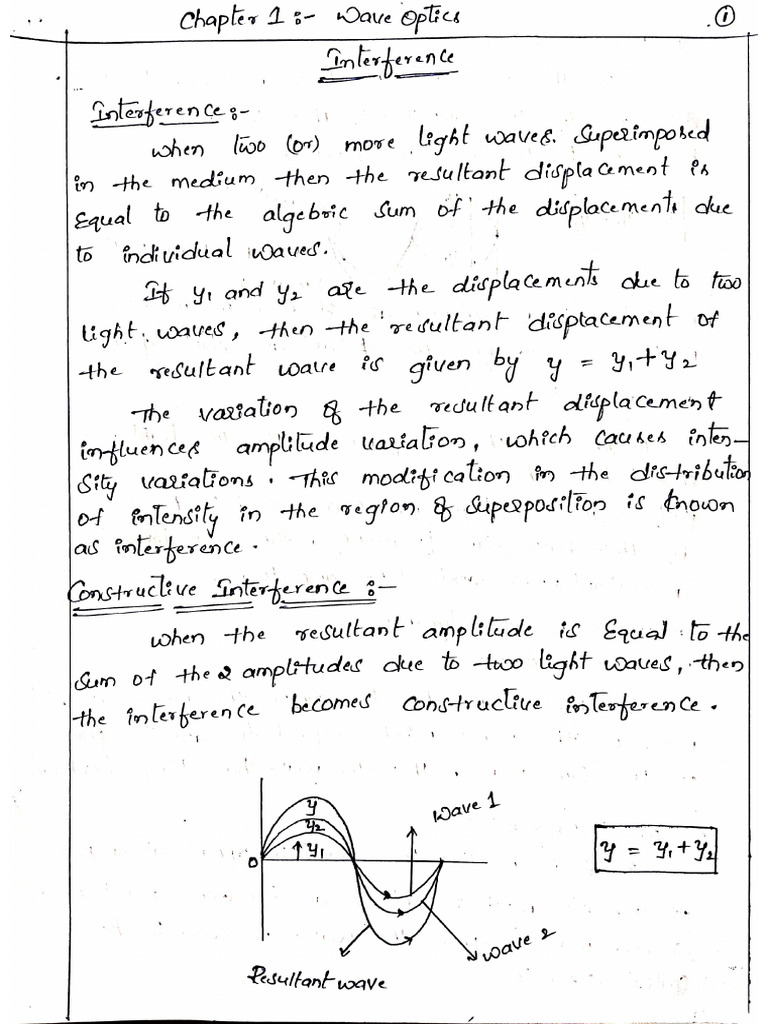 Chapter 1 :- Wave Optics
①
Interference
Interference :-
When two (or) more light waves. Superimposed
in the medium, then the resultant displacement is
Equal to the algebric sum of the displacements due
to individual waves.
If y₁ and y₂ are the displacements due to two
light waves, then the resultant displacement of
the resultant wave is given by y = y₁+y₂
The variation of the resultant displacement
influences amplitude variation, which causes inten-
sity variations. This modification in the distribution
of intensity in the region of superposition is known
as interference.
Constructive Interference :-
When the resultant amplitude is Equal to the
sum of the 2 amplitudes due to two light waves, then
the interference becomes constructive interference.
y
y₂
y₁
0
wave 1
y = y₁+y₂
wave 2
Resultant wave